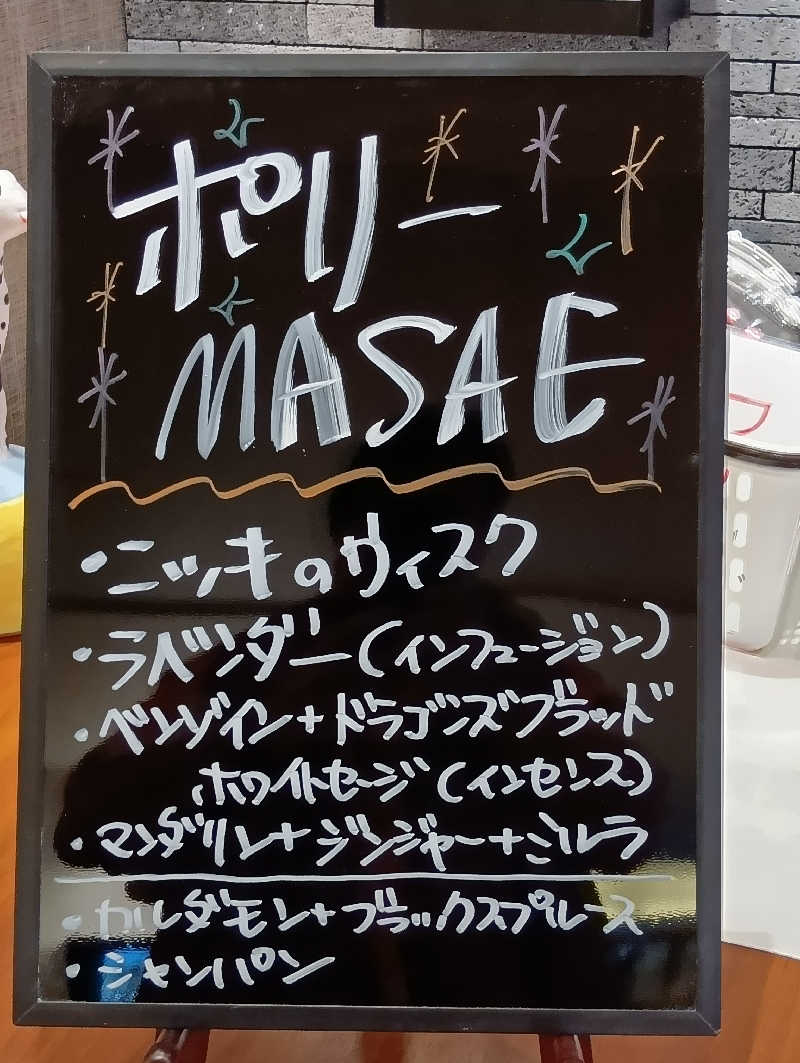 ポリー
MASAE
・ニッキのウィスク
・ラベンダー(インフュージョン)
・ベンゾイン+ドラゴンズブラッド
ホワイトセージ(インセンス)
・マンダリン+ジンジャー+ミルラ
・カルダモン+ブラックスプルース
・シャンパン